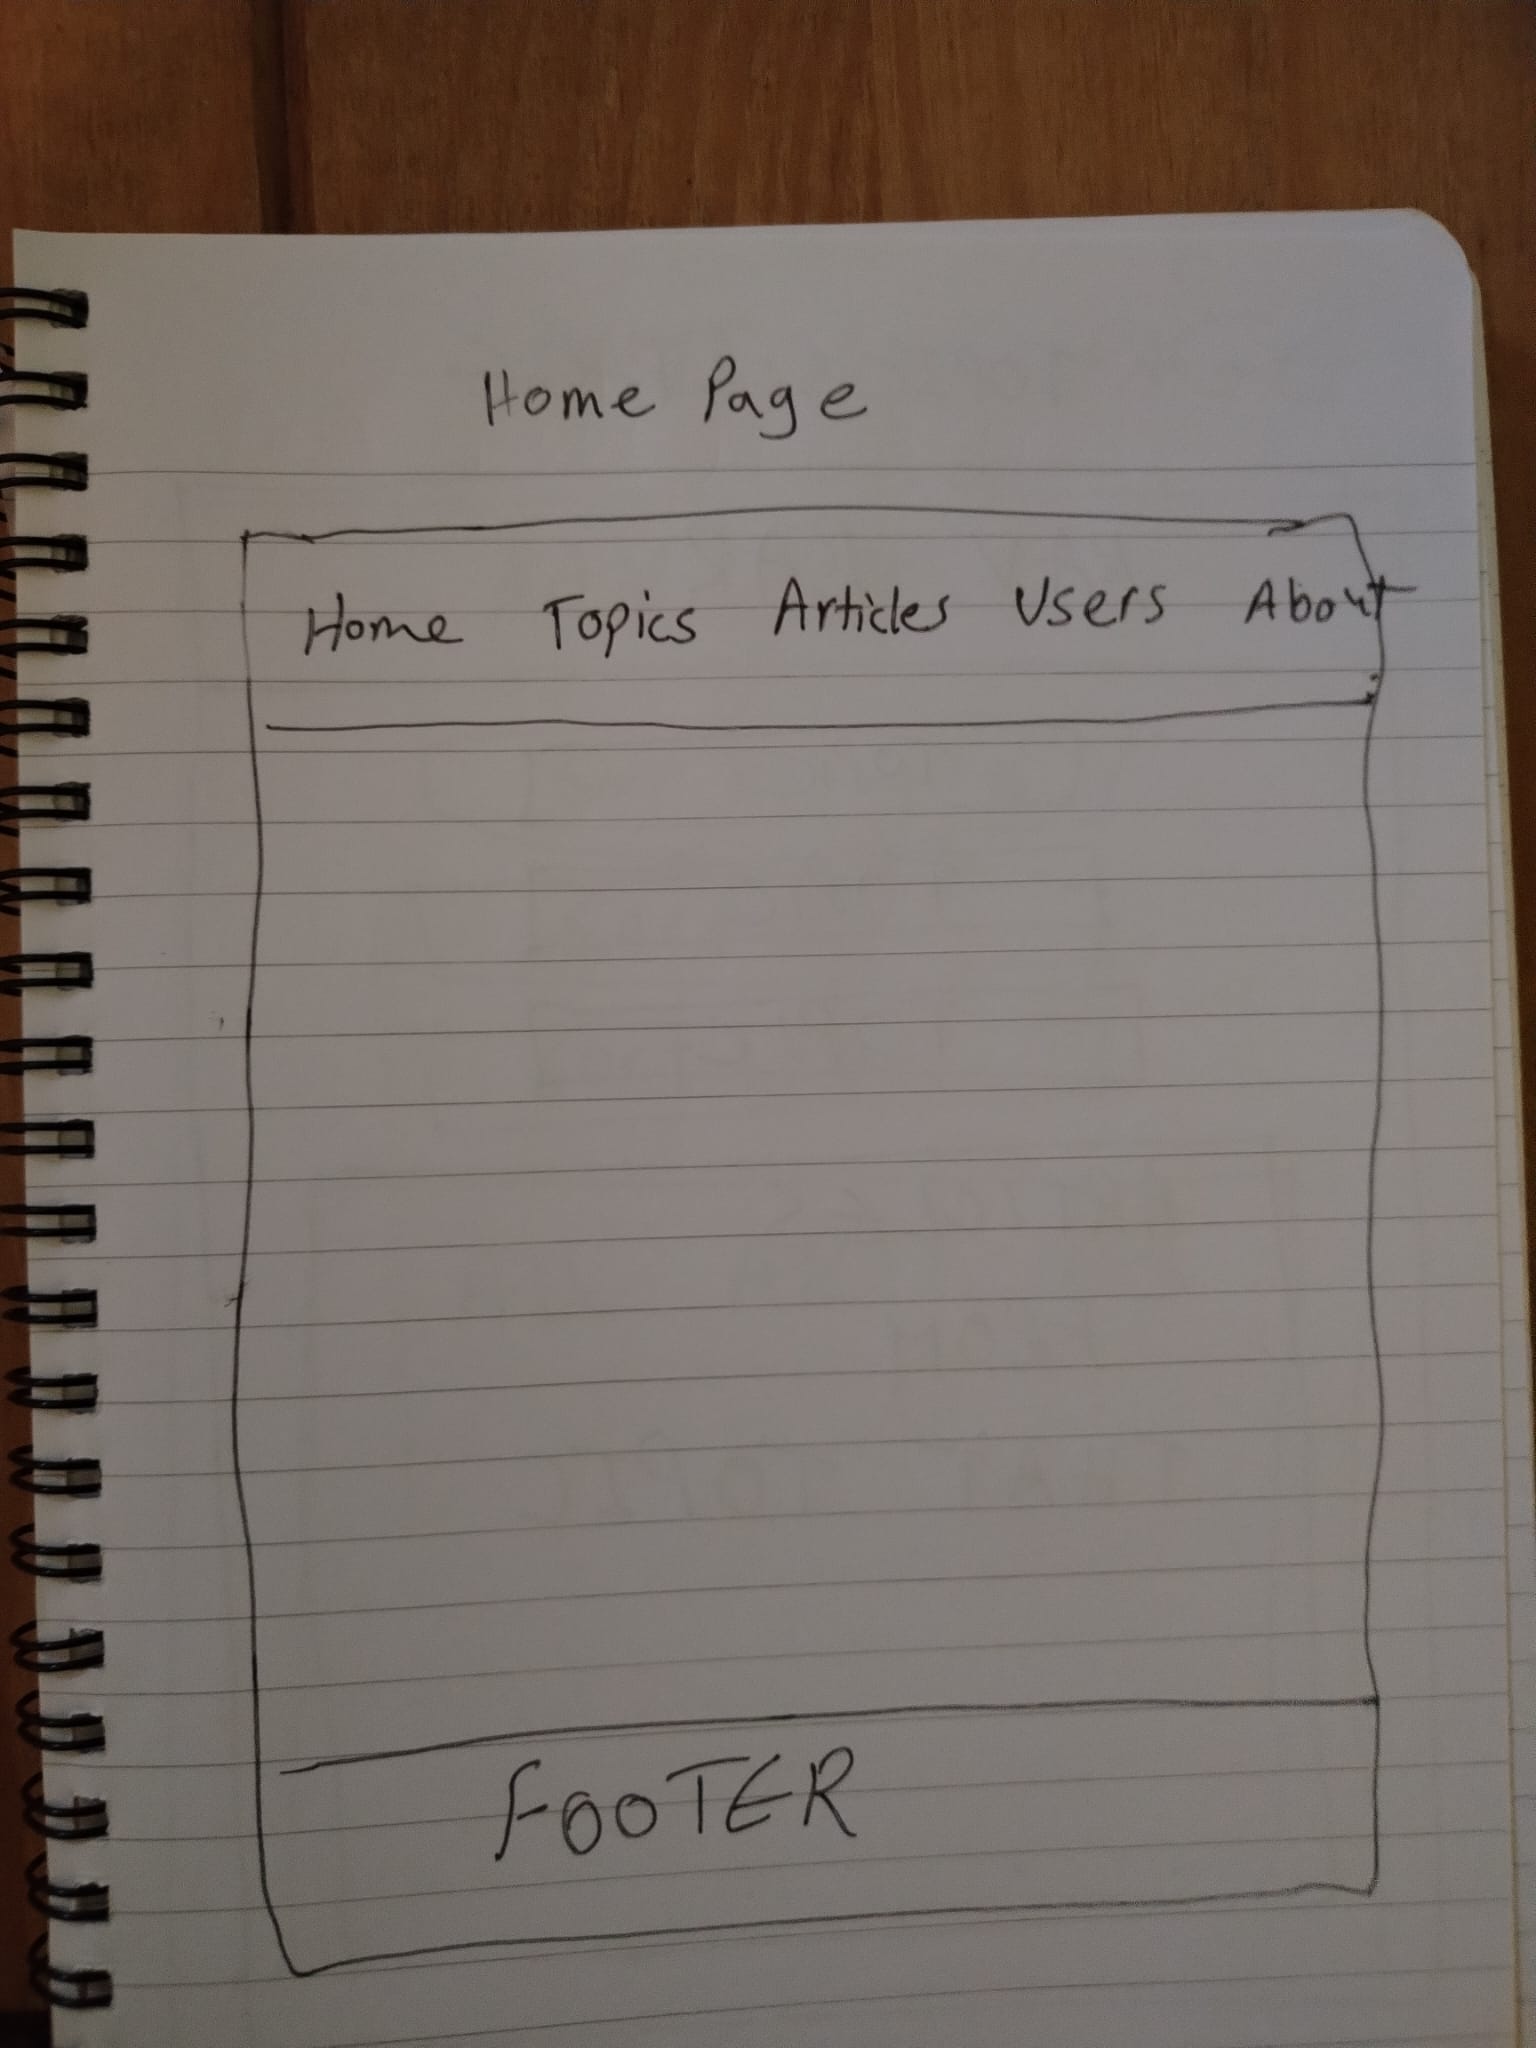 Home Page
Home Topics Articles Users About
FOOTER